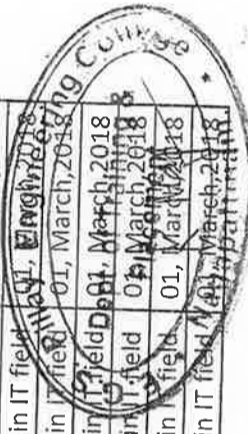 in IT field 01, March,2018
in IT field 01, March,2018
in IT field 01, March,2018
in IT field 01, March,2018
in IT field 01, March,2018
in IT field 01, March,2018
Engineering College
Dept. of Training &
Placement
Nagapattinam